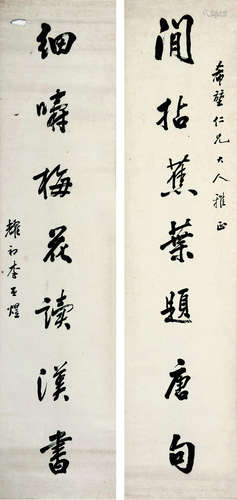 希璧仁兄大人雅正
閒拈蕉葉題唐句
細嚼梅花讀漢書
耀初李玉煜